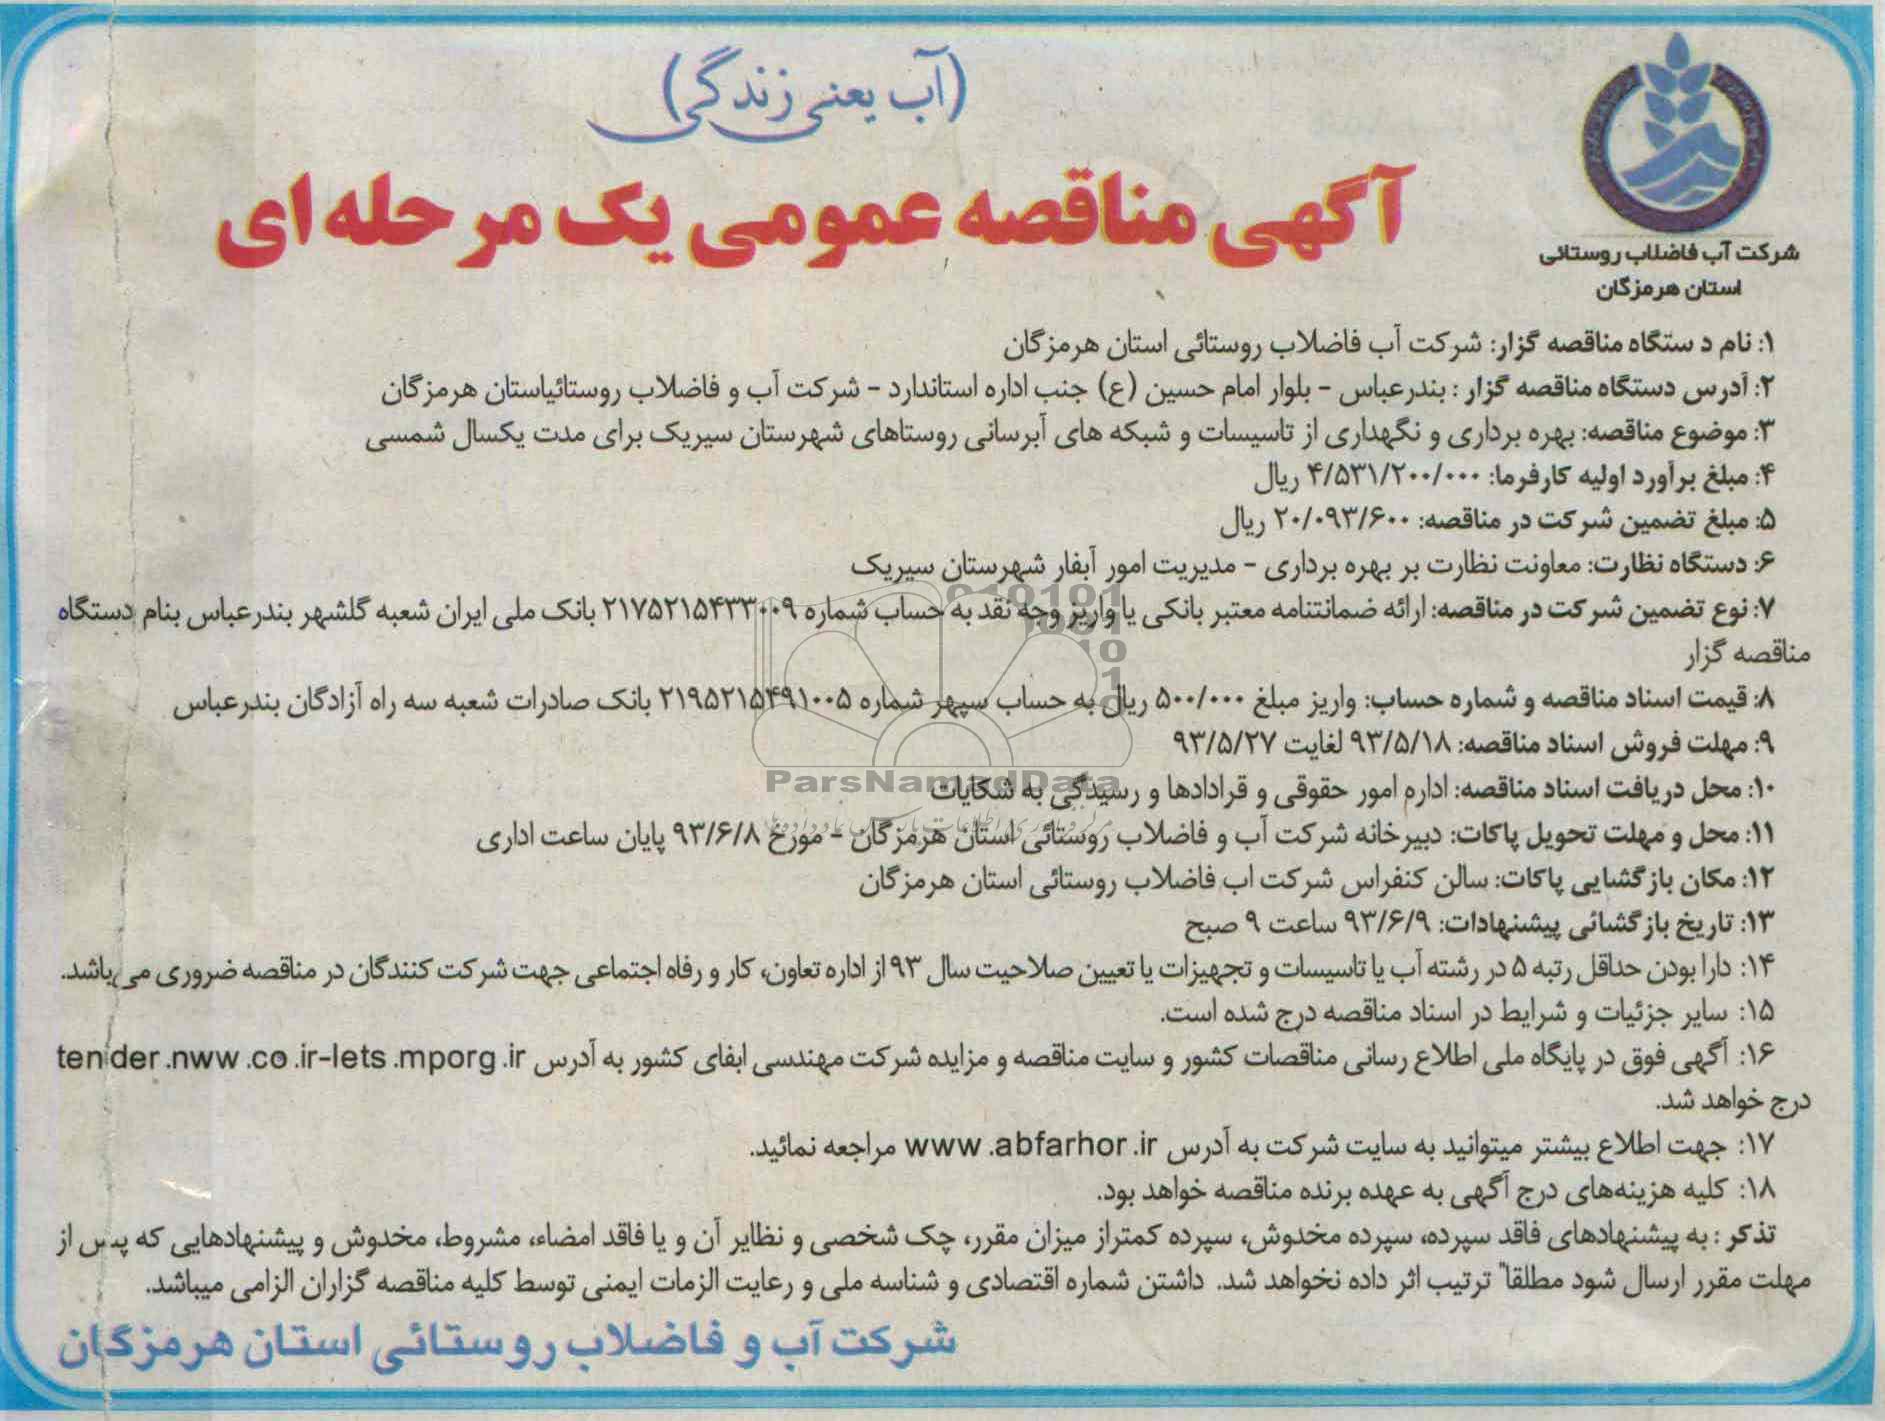 (آب یعنی زندگی)
آگهی مناقصه عمومی یک مرحله ای
شرکت آب فاضلاب روستائی
استان هرمزگان
۱: نام د ستگاه مناقصه گزار: شرکت آب فاضلاب روستائی استان هرمزگان
۲: آدرس دستگاه مناقصه گزار : بندرعباس - بلوار امام حسین (ع) جنب اداره استاندارد - شرکت آب و فاضلاب روستائیاستان هرمزگان
۳: موضوع مناقصه: بهره برداری و نگهداری از تاسیسات و شبکه های آبرسانی روستاهای شهرستان سیریک برای مدت یکسال شمسی
۴: مبلغ برآورد اولیه کارفرما: ۴/۵۳۱/۲۰۰/۰۰۰ ریال
۵: مبلغ تضمین شرکت در مناقصه: ۲۰/۰۹۳/۶۰۰ ریال
۶: دستگاه نظارت: معاونت نظارت بر بهره برداری - مدیریت امور آبفار شهرستان سیریک
۷: نوع تضمین شرکت در مناقصه: ارائه ضمانتنامه معتبر بانکی یا واریز وجه نقد به حساب شماره ۲۱۷۵۲۱۵۴۳۳۰۰۹ بانک ملی ایران شعبه گلشهر بندرعباس بنام دستگاه
مناقصه گزار
۸: قیمت اسناد مناقصه و شماره حساب: واریز مبلغ ۵۰۰/۰۰۰ ریال به حساب سپهر شماره ۲۱۹۵۲۱۵۴۹۱۰۰۵ بانک صادرات شعبه سه راه آزادگان بندرعباس
۹: مهلت فروش اسناد مناقصه: ۹۳/۵/۱۸ لغایت ۹۳/۵/۲۷
ParsNamadData
۱۰: محل دریافت اسناد مناقصه: اداره امور حقوقی و قرادادها و رسیدگی به شکایات
۱۱: محل و مهلت تحویل پاکات: دبیرخانه شرکت آب و فاضلاب روستائی استان هرمزگان - مورخ ۹۳/۶/۸ پایان ساعت اداری
۱۲: مکان بازگشایی پاکات: سالن کنفراس شرکت اب فاضلاب روستائی استان هرمزگان
۱۳: تاریخ بازگشائی پیشنهادات: ۹۳/۶/۹ ساعت ۹ صبح
۱۴: دارا بودن حداقل رتبه ۵ در رشته آب یا تاسیسات و تجهیزات یا تعیین صلاحیت سال ۹۳ از اداره تعاون، کار و رفاه اجتماعی جهت شرکت کنندگان در مناقصه ضروری می‌باشد.
۱۵: سایر جزئیات و شرایط در اسناد مناقصه درج شده است.
۱۶: آگهی فوق در پایگاه ملی اطلاع رسانی مناقصات کشور و سایت مناقصه و مزایده شرکت مهندسی ابفای کشور به آدرس tender.nww.co.ir-Iets.mporg.ir
درج خواهد شد.
۱۷: جهت اطلاع بیشتر میتوانید به سایت شرکت به آدرس www.abfarhor.ir مراجعه نمائید.
۱۸: کلیه هزینه‌های درج آگهی به عهده برنده مناقصه خواهد بود.
تذکر : به پیشنهادهای فاقد سپرده، سپرده مخدوش، سپرده کمتراز میزان مقرر، چک شخصی و نظایر آن و یا فاقد امضاء، مشروط، مخدوش و پیشنهادهایی که پس از
مهلت مقرر ارسال شود مطلقا" ترتیب اثر داده نخواهد شد. داشتن شماره اقتصادی و شناسه ملی و رعایت الزمات ایمنی توسط کلیه مناقصه گزاران الزامی میباشد.
شرکت آب و فاضلاب روستائی استان هرمزگان